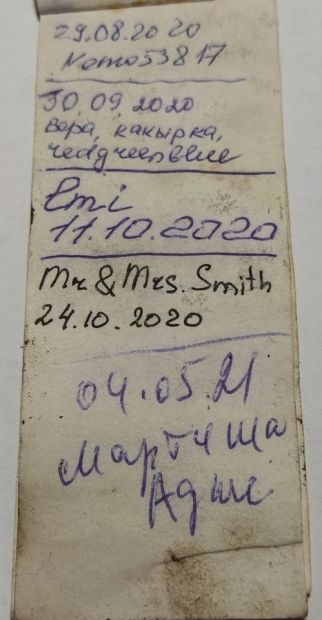 29.08.2020
Nemo53817
30 09 2020
вера, какырка,
redgreenblue
Emi
11.10.2020
Mr & Mrs. Smith
24.10.2020
04.05.21